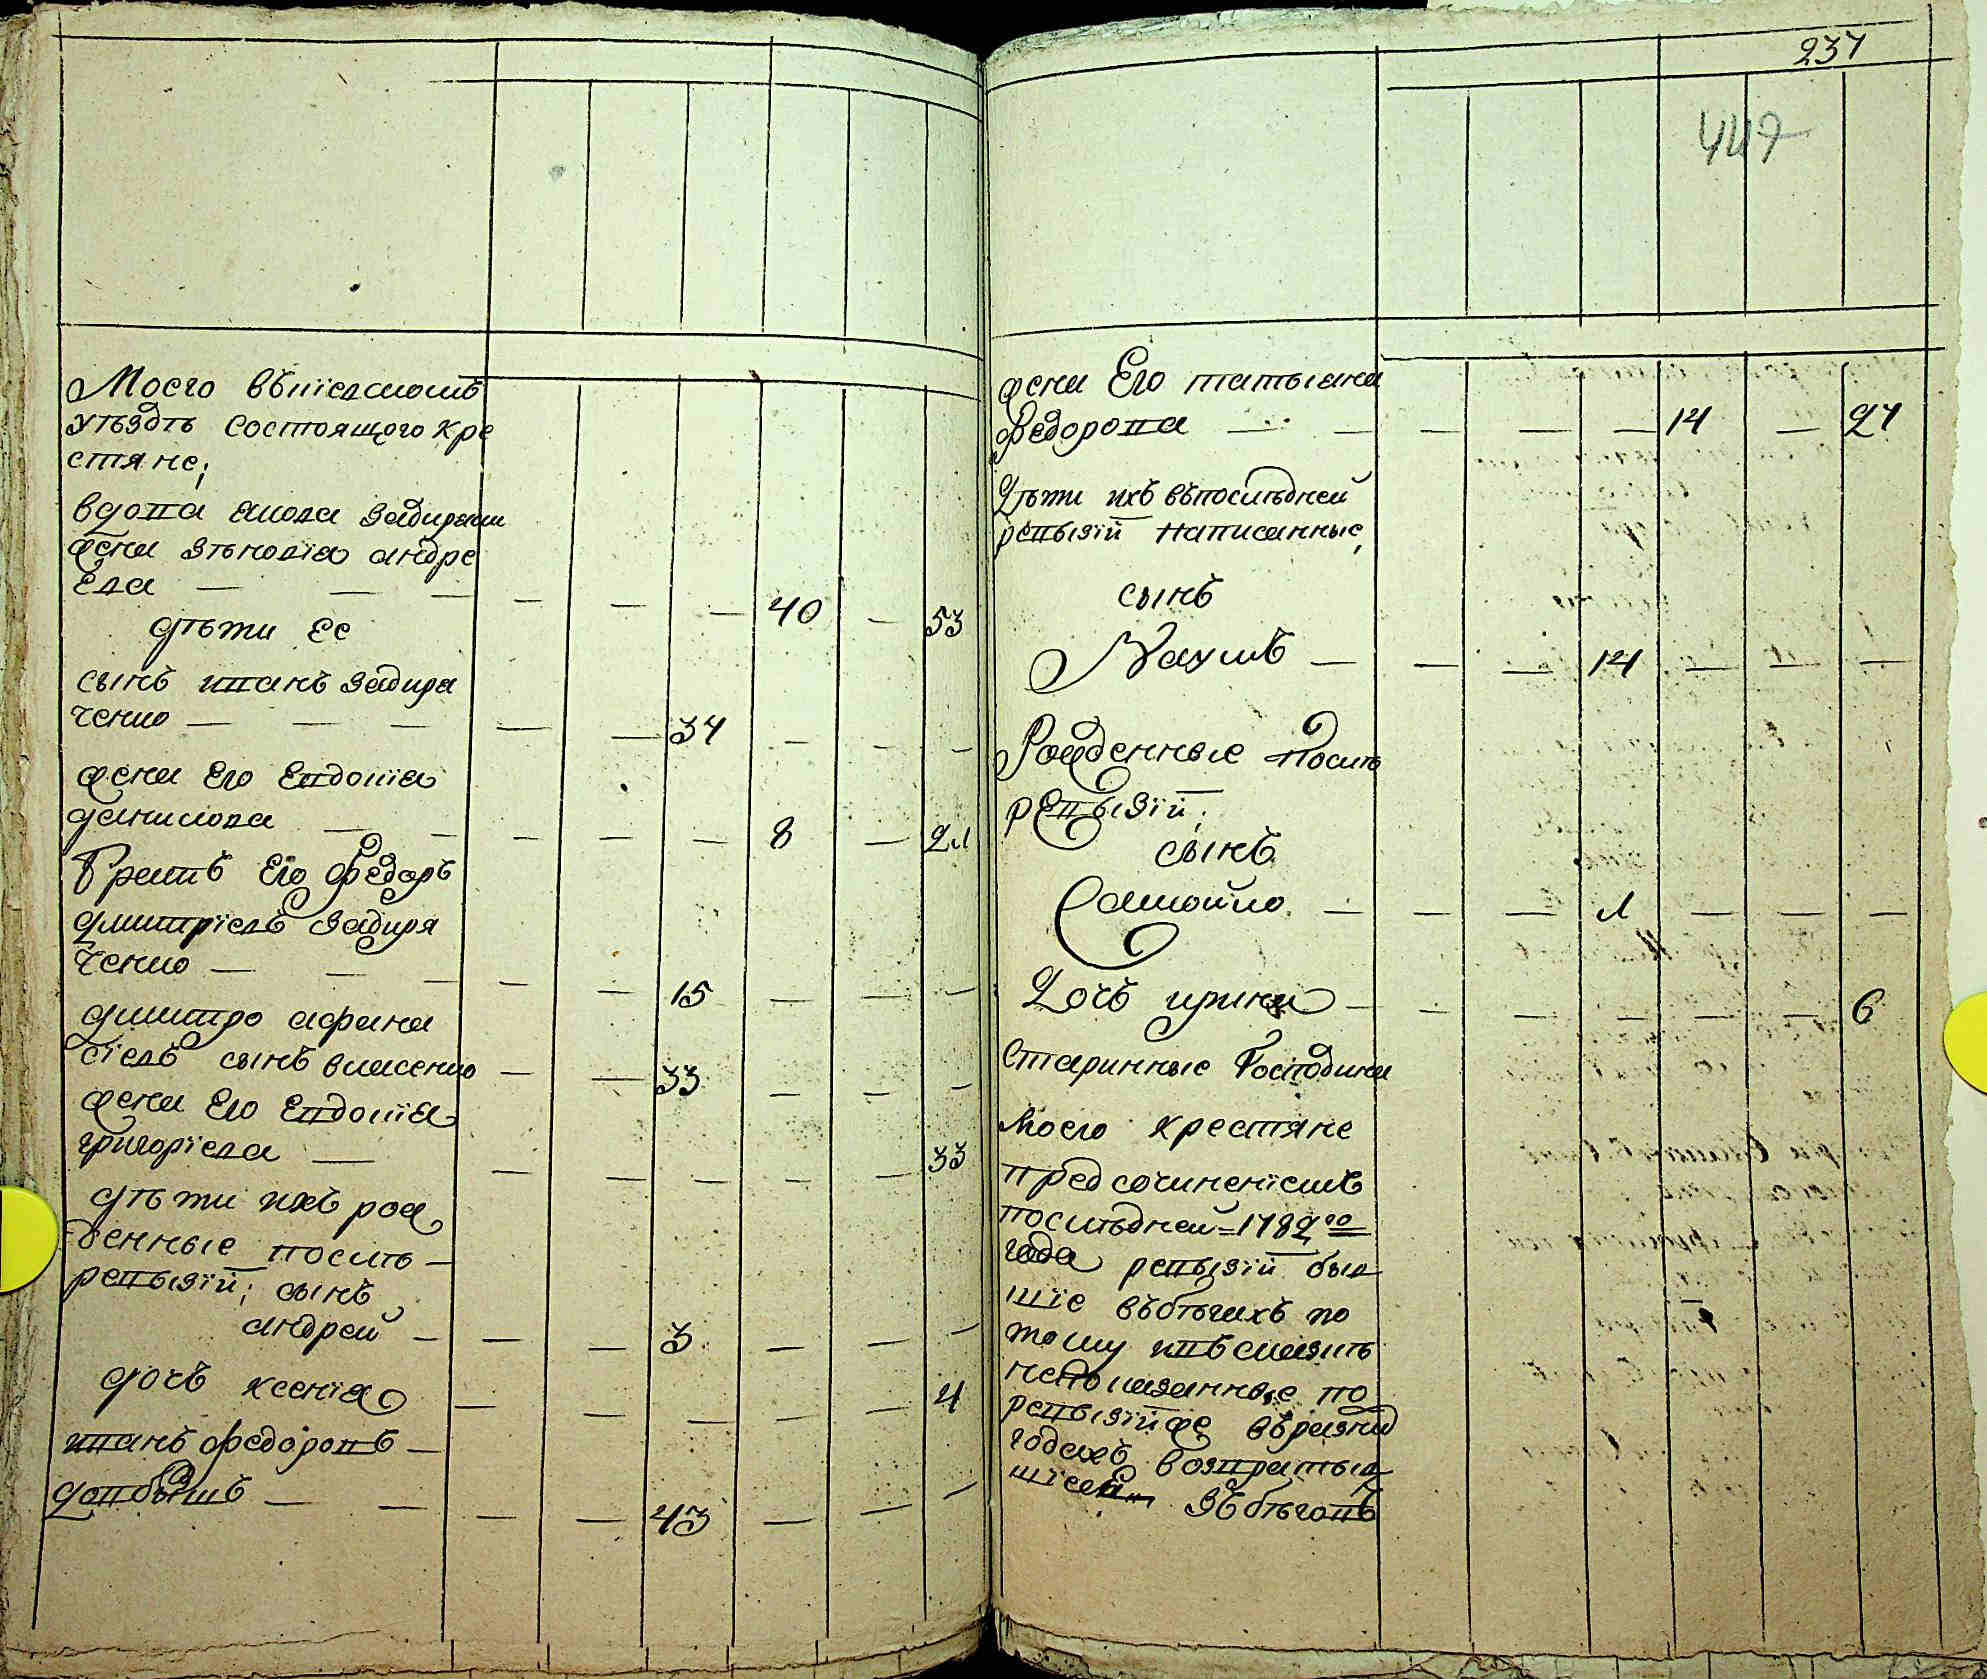 Моего вкиевскомъ
уѣздѣ состоящого кре
стяне;
вдова
жена Зѣновїя андре
Ева — — — — — — 40 — 53
дѣти Ее
сынъ иванъ Задира
ченко — — — — — 34 — — —
жена Его Евдокїя
даниловa — — — — — 8 — 21
Братъ Его Федоръ
дмитрїевъ Задира
ченко — — — — 15 — — —
дмитро афана
сїевъ сынъ власенко — — 33 — — —
жена Его Евдокїя
григорїева — — — — — — 33
дѣти ихъ рож
денные послѣ —
ревызїй; сынъ
андрей — — — 3 — — —
дочъ ксенїя — — — — — 4
иванъ федоровъ —
довбышъ — — — — 43 — — —
237
447
жена Его татьяна
Федорова — — — — — 14 — 27
Дѣти ихъ въпослѣдней
ревызїй написанные,
сынъ
— — — 14 — — —
Рожденные послѣ
ревызїй;
сынъ
Самойло — — — 1 — — —
Дочъ ирина — — — — — — 6
Старинные Господина
Моего крестяне
пред сочиненїемъ
послѣдней = 1782го
года ревызїй быв
шїе въбѣгахъ по
тому ивъсказкѣ
непоказанные по
ревызїй же въразных
годахъ возвратыв
шїеся зъ бѣговъ